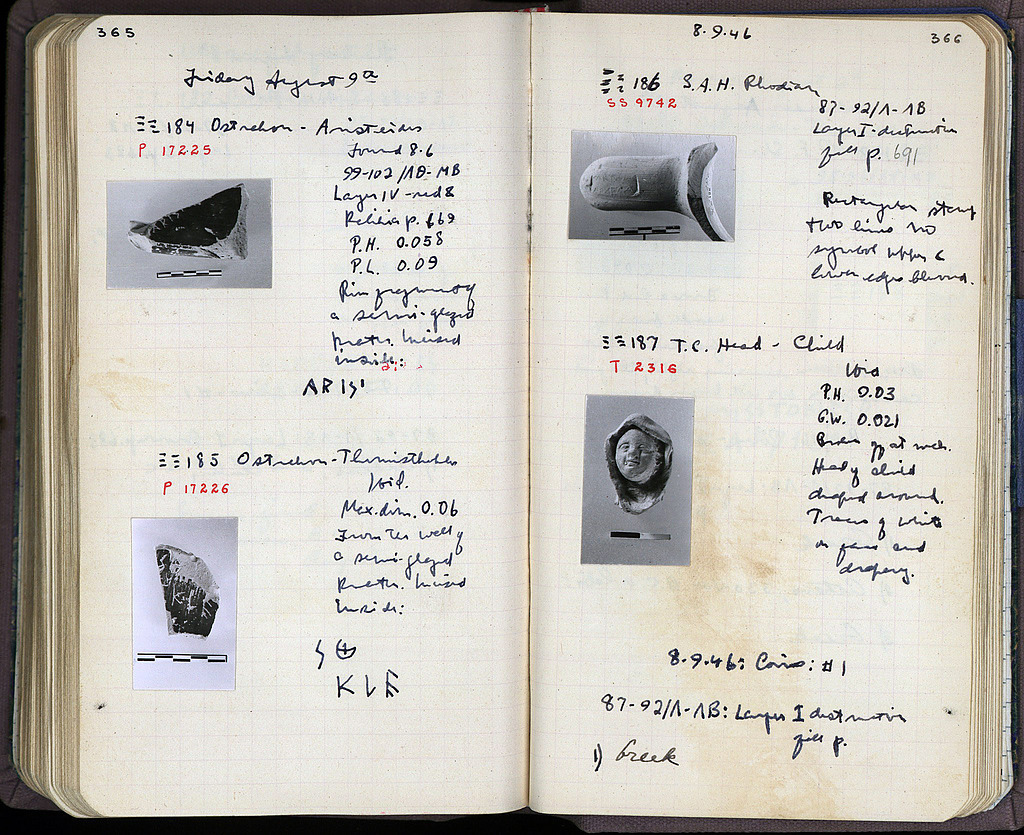 365
Friday August 9th
184 Ostrakon - Aristeides
P 17225
Found 8.6
99-102/ΛΘ-ΜΒ
Layer IV - red &
p. 669
P.H. 0.058
P.L. 0.09
Rim fragment of
a semi-glazed
krater. Incised
inside:
ΑΡΙΣ
185 Ostrakon - Themisthokles
P 17226
Ibid.
Max. dim. 0.06
From the wall of
a semi-glazed
krater. Incised
inside:
ΚΛΕ
8.9.46
366
186 S.A.H. Rhodian
SS 9742
87-92/Λ-ΛΒ
Layer I - destruction
fill p. 691
Rectangular stamp
two lines no
symbol upper &
lower edges blurred.
187 T.C. Head - Child
T 2316
Ibid
P.H. 0.03
G.W. 0.021
Broken off at neck.
Head of child
draped around.
Traces of white
on face and
drapery.
8.9.46: Coins: #1
87-92/Λ-ΛΒ: Layer I destruction
fill p.
1) Greek